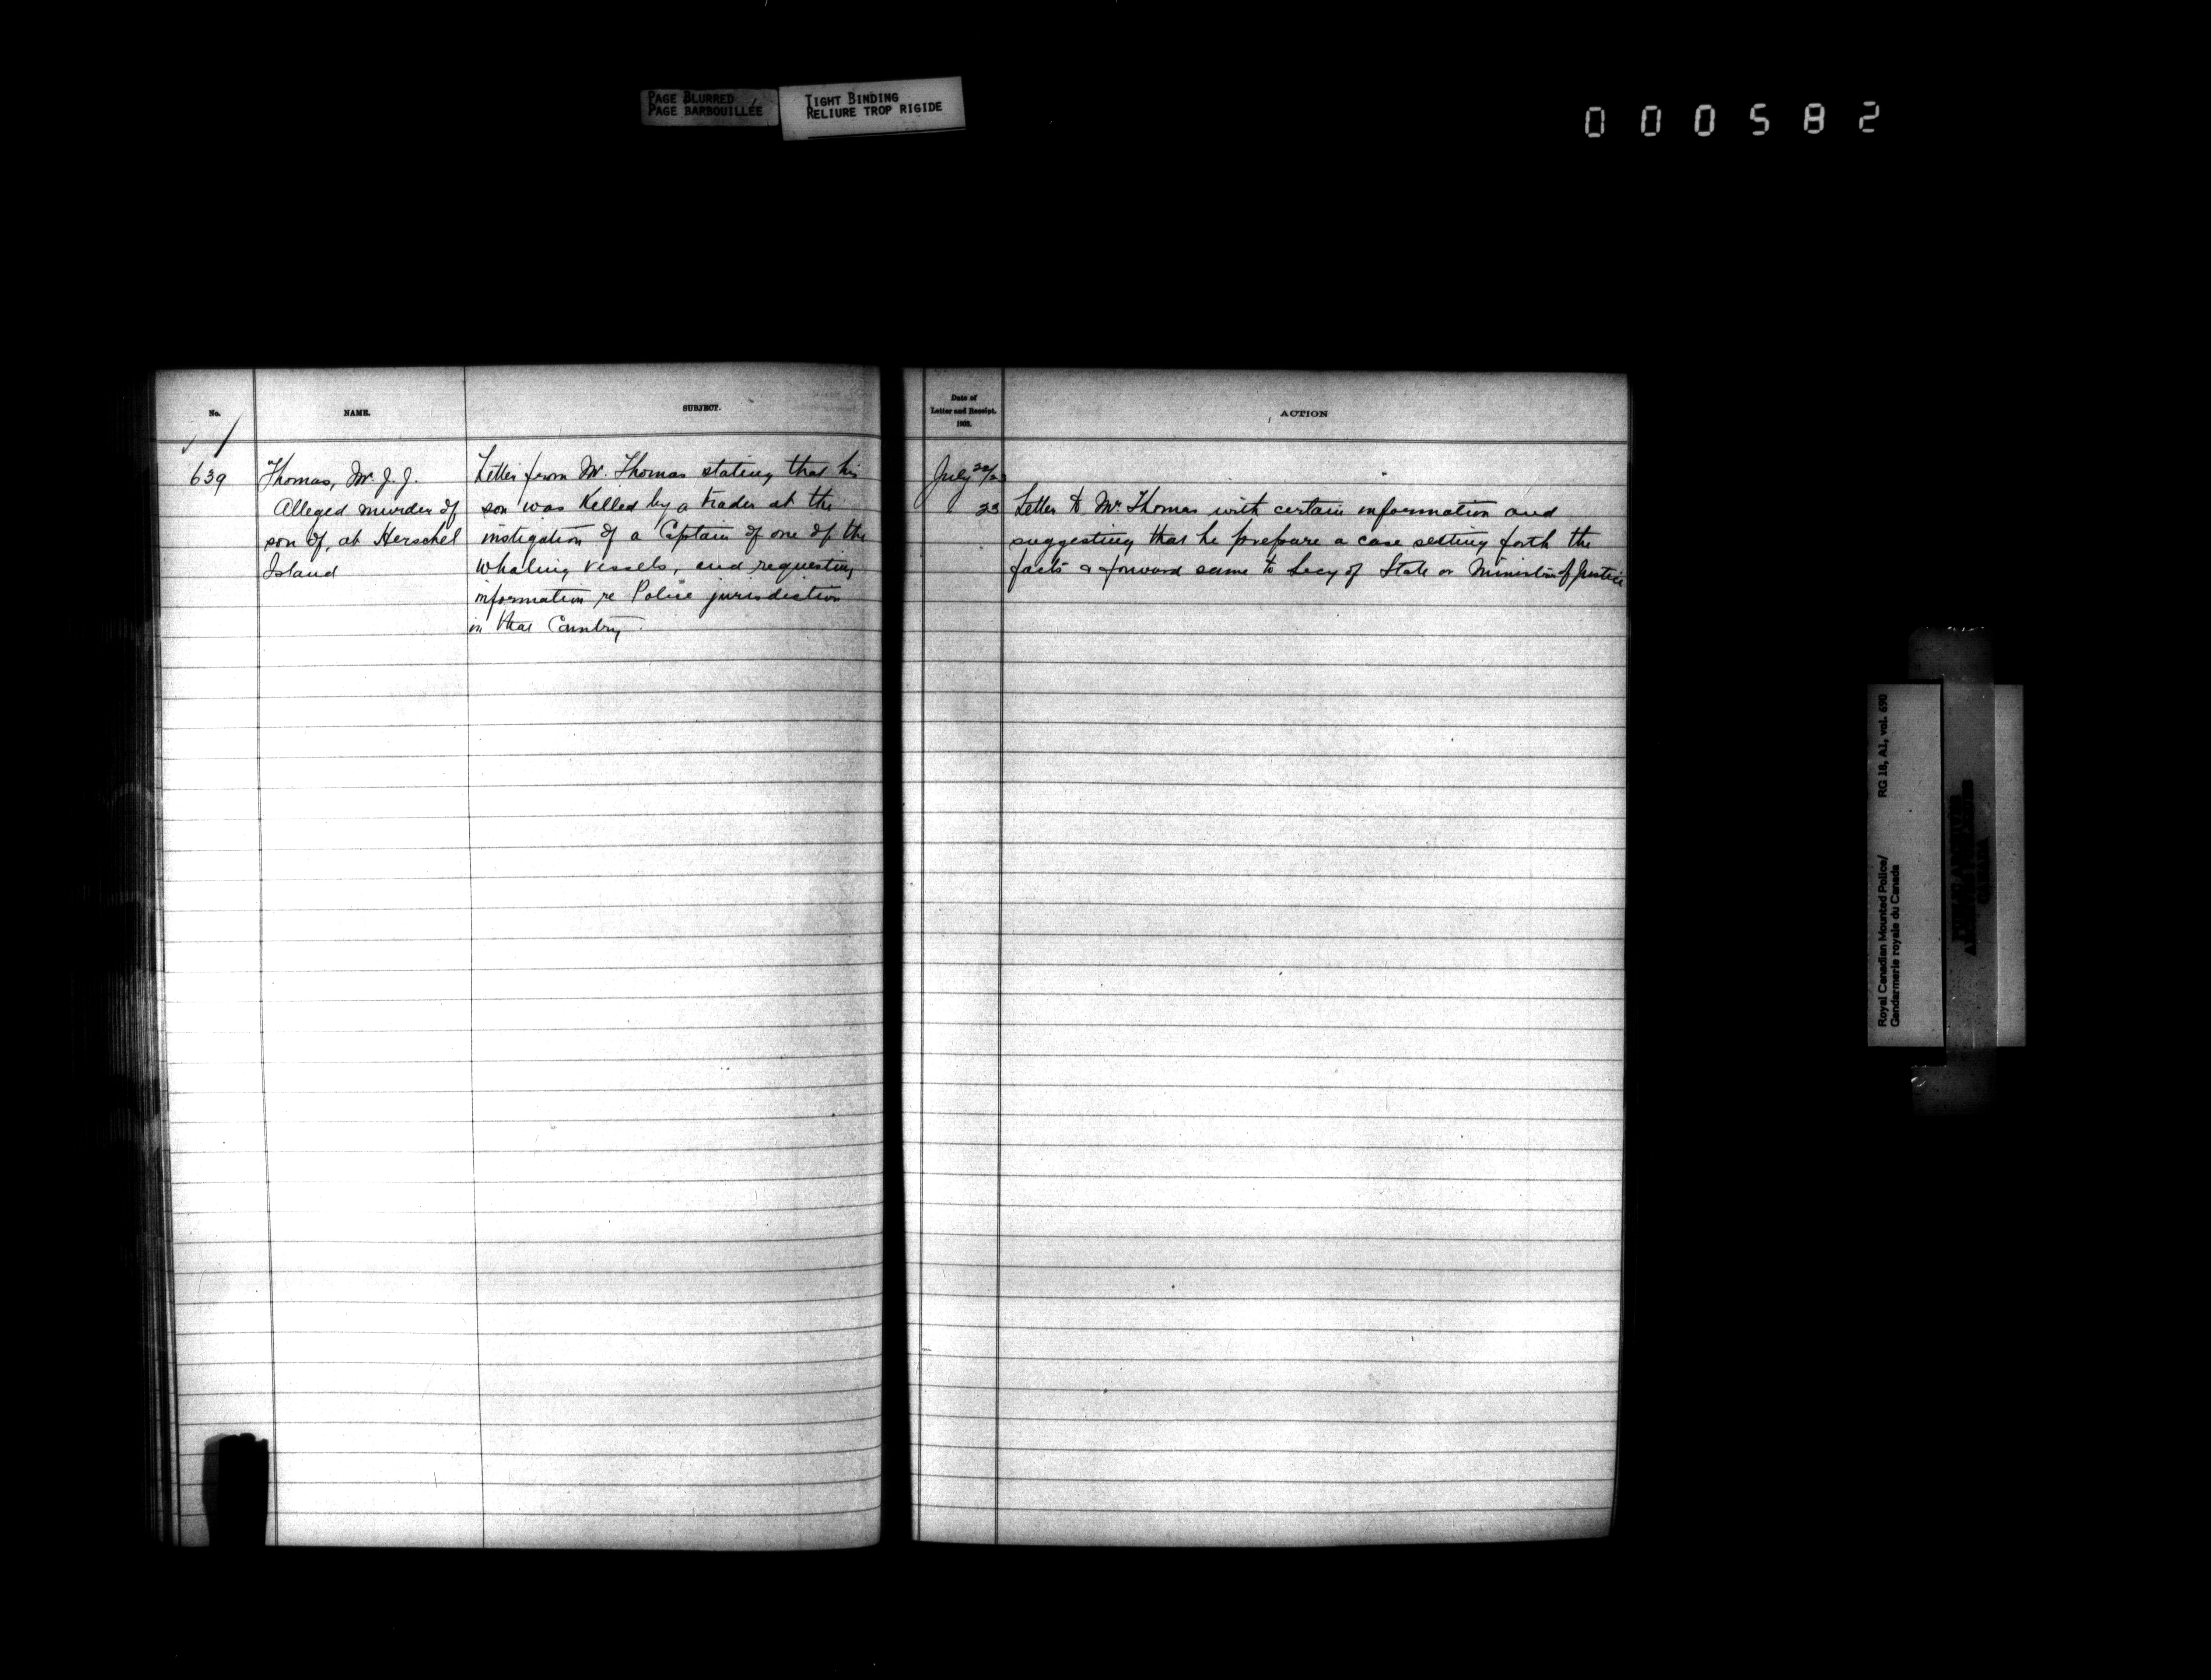 PAGE BLURRED
PAGE BARBOUILLÉE
TIGHT BINDING
RELIURE TROP RIGIDE
000582
No.
NAME.
SUBJECT.
639
Thomas, Mr. J. J.
Alleged murder of
son of, at Herschel
Island
Letter from Mr. Thomas stating that his
son was killed by a trader at the
instigation of a Captain of one of the
whaling vessels, and requesting
information re Police jurisdiction
in that Country.
Date of
Letter and Receipt.
1903.
ACTION
July 22/23
23 Letter to Mr. Thomas with certain information and
suggesting that he prepare a case setting forth the
facts & forward same to Secy of State or Minister of Justice
RG 18, A1, vol. 690
Royal Canadian Mounted Police/
Gendarmerie royale du Canada